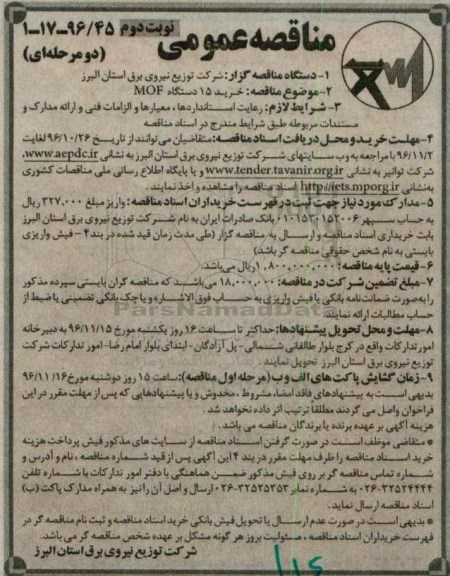 مناقصه عمومی نوبت دوم ۹۶/۴۵-۱۷-۱
(دو مرحله‌ای)
۱- دستگاه مناقصه گزار: شرکت توزیع نیروی برق استان البرز
۲- موضوع مناقصه: خرید ۱۵ دستگاه MOF
۳- شرایط لازم: رعایت استانداردها، معیارها و الزامات فنی و ارائه مدارک و
مستندات مربوطه طبق شرایط مندرج در اسناد مناقصه
۴- مهلت خرید و محل دریافت اسناد مناقصه: متقاضیان می‌توانند از تاریخ ۹۶/۱۰/۲۶ لغایت
۹۶/۱۱/۲ با مراجعه به وب سایتهای شرکت توزیع نیروی برق استان البرز به نشانی www.aepdc.ir،
شرکت توانیر به نشانی www.tender.tavanir.org.ir و یا پایگاه اطلاع رسانی ملی مناقصات کشوری
به‌نشانی http://iets.mporg.ir اسناد مناقصه را مشاهده و اخذ نمایند.
۵- مدارک مورد نیاز جهت ثبت در فهرست خریداران اسناد مناقصه: واریز مبلغ ۳۲۷.۰۰۰ ریال
به حساب سپهر ۰۱۰۱۵۳۰۱۵۲۰۰۶ بانک صادرات ایران به نام شرکت توزیع نیروی برق استان البرز
بابت خریداری اسناد مناقصه و ارسال به مناقصه گزار (طی مدت زمان قید شده در بند ۴ - فیش واریزی
بایستی به نام شخص حقوقی مناقصه گر باشد)
۶- قیمت پایه مناقصه: ۱,۸۰۰,۰۰۰,۰۰۰ ریال می‌باشد.
۷- مبلغ تضمین شرکت در مناقصه: ۱۸,۰۰۰,۰۰۰ می‌باشد که مناقصه گران بایستی سپرده مذکور
را به‌صورت ضمانت‌نامه بانکی یا فیش واریزی به حساب فوق الاشاره و یا چک بانکی تضمینی یا ضبط از
حساب مطالبات ارائه نمایند.
۸- مهلت و محل تحویل پیشنهادها: حداکثر تا ساعت ۱۶ روز یکشنبه مورخ ۹۶/۱۱/۱۵ به دبیرخانه
امور تدارکات واقع در کرج بلوار طالقانی شمالی- پل آزادگان- ابتدای بلوار امام رضا- امور تدارکات شرکت
توزیع نیروی برق استان البرز تحویل نمایند.
۹- زمان گشایش پاکت های الف و ب (مرحله اول مناقصه): ساعت ۱۵ روز دوشنبه مورخ ۹۶/۱۱/۱۶
بدیهی است به پیشنهادهای فاقد امضا، مشروط، مخدوش و یا پیشنهادهایی که پس از مهلت مقرر در این
فراخوان واصل می گردند مطلقا ترتیب اثر داده نخواهد شد.
هزینه آگهی بر عهده برنده یا برندگان مناقصه می باشد.
* متقاضی موظف است در صورت گرفتن اسناد مناقصه از سایت های مذکور فیش پرداخت هزینه
خرید اسناد مناقصه را ظرف مهلت مقرر در بند ۴ این آگهی پس از قید شماره مناقصه، نام و آدرس و
شماره تماس مناقصه گر بر روی فیش مذکور ضمن هماهنگی با دفتر امور تدارکات با شماره تلفن
۰۲۶-۳۲۵۲۴۴۴۴ به شماره نمابر ۰۲۶-۳۲۵۲۵۳۵۳ ارسال و اصل آن را نیز به همراه مدارک پاکت (ب)
اسناد مناقصه ارسال نماید.
* بدیهی است در صورت عدم ارسال یا تحویل فیش بانکی خرید اسناد مناقصه و ثبت نام مناقصه گر در
فهرست خریداران اسناد مناقصه، مسئولیت بروز هر گونه مشکل بر عهده شخص مناقصه گر می باشد.
شرکت توزیع نیروی برق استان البرز
ParsNamadData